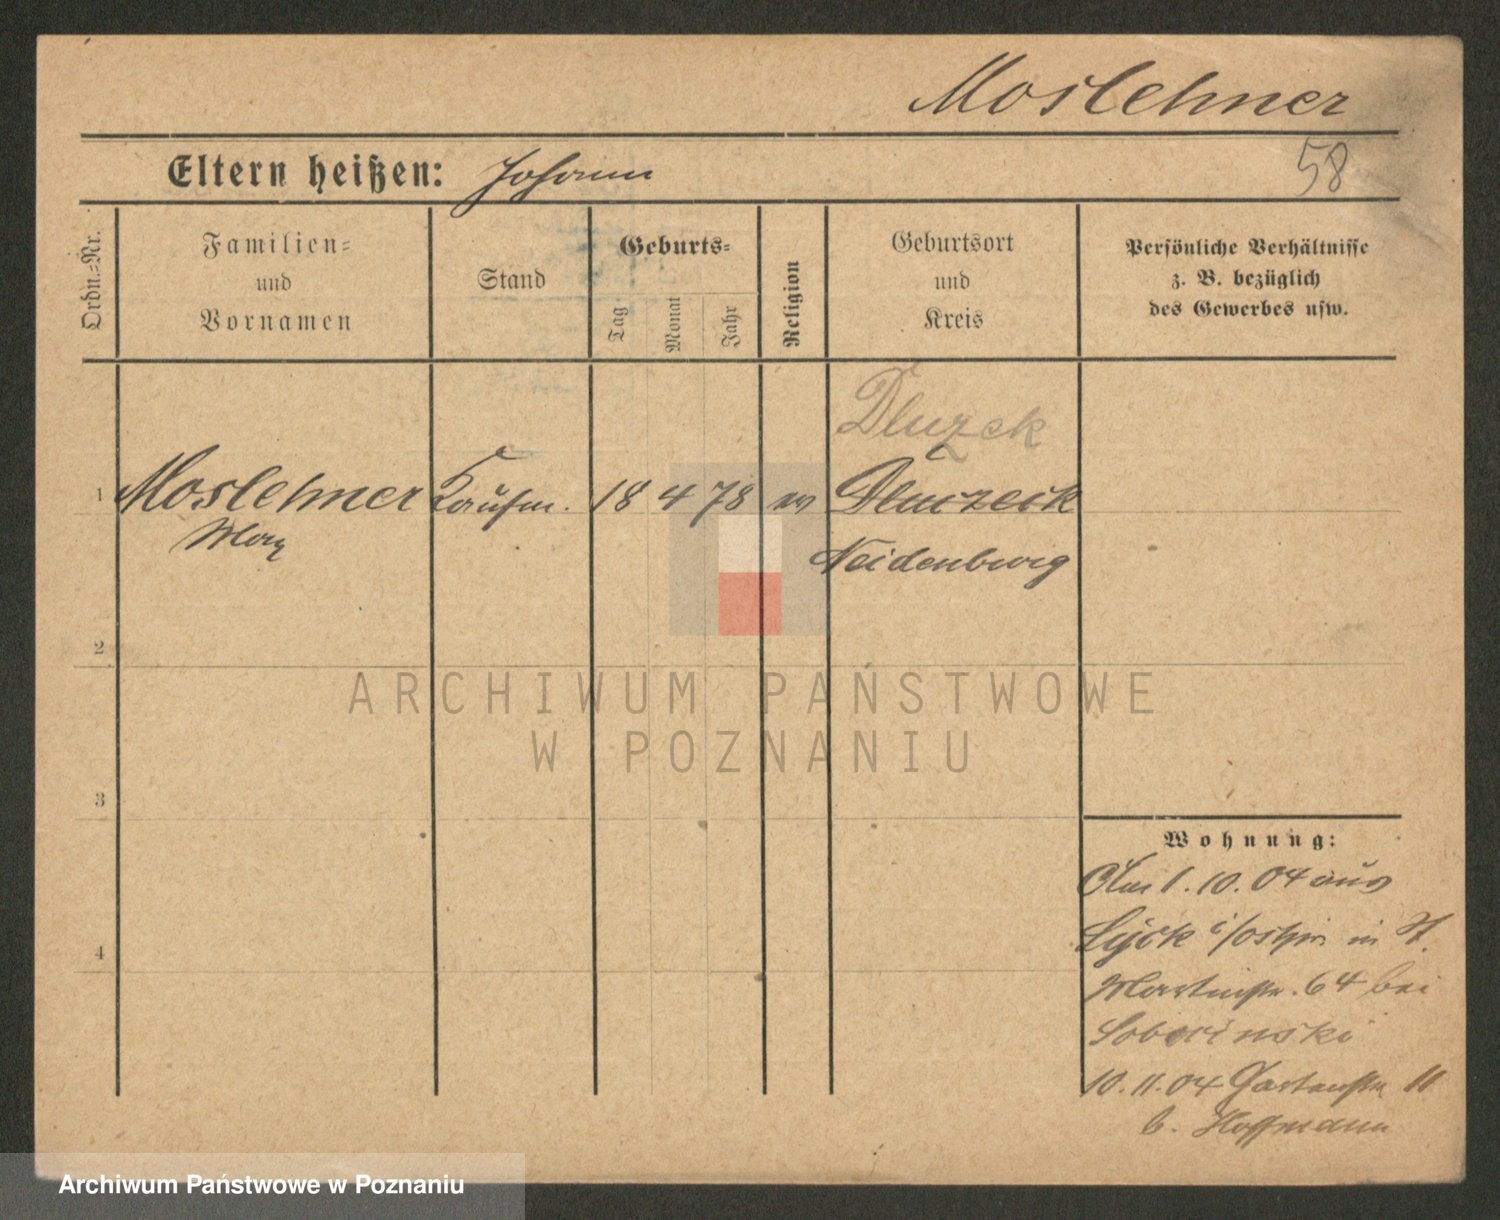 Moslehner
Eltern heißen: Johann
58
Ordn.-Nr.
Familien-
und
Vornamen
Stand
Geburts-
Tag
Monat
Jahr
Religion
Geburtsort
und
Kreis
Persönliche Verhältnisse
z. B. bezüglich
des Gewerbes usw.
Dluzek
1 Moslehner Kaufm. 18 4 78 ev Dluczeck
Max
Neidenburg
2
ARCHIWUM PAŃSTWOWE
W POZNANIU
3
Wohnung:
Am 1. 10. 04 aus
Lyck i/Ostpr. in St.
4
Martinstr. 64 bei
10. 11. 04 Gartenstr 11
b. Hoffmann
Archiwum Państwowe w Poznaniu